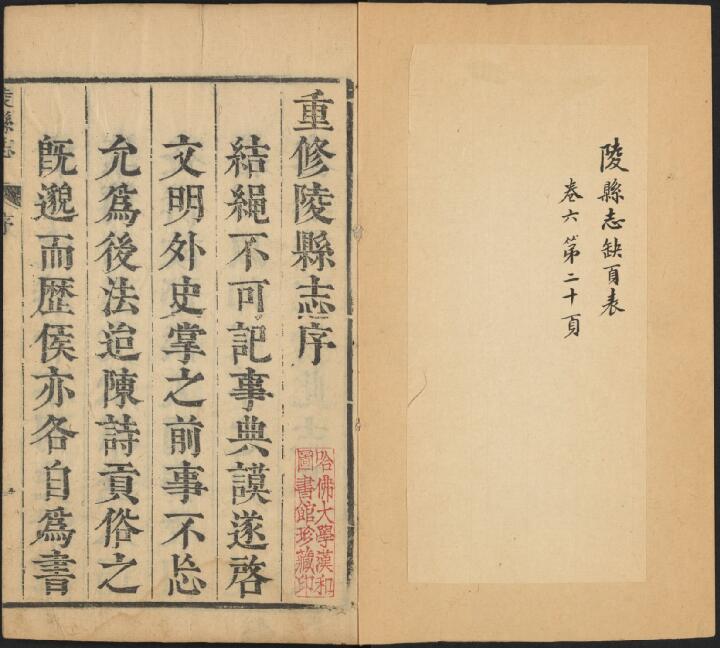 陵縣志缺頁表
卷六第二十頁
重修陵縣志序
結繩不可記事典謨遂啓
文明外史掌之前事不忘
允爲後法迨陳詩貢俗之
旣邈而歷侯亦各自爲書
哈佛大學漢和
圖書館珍藏印
陵縣志
序